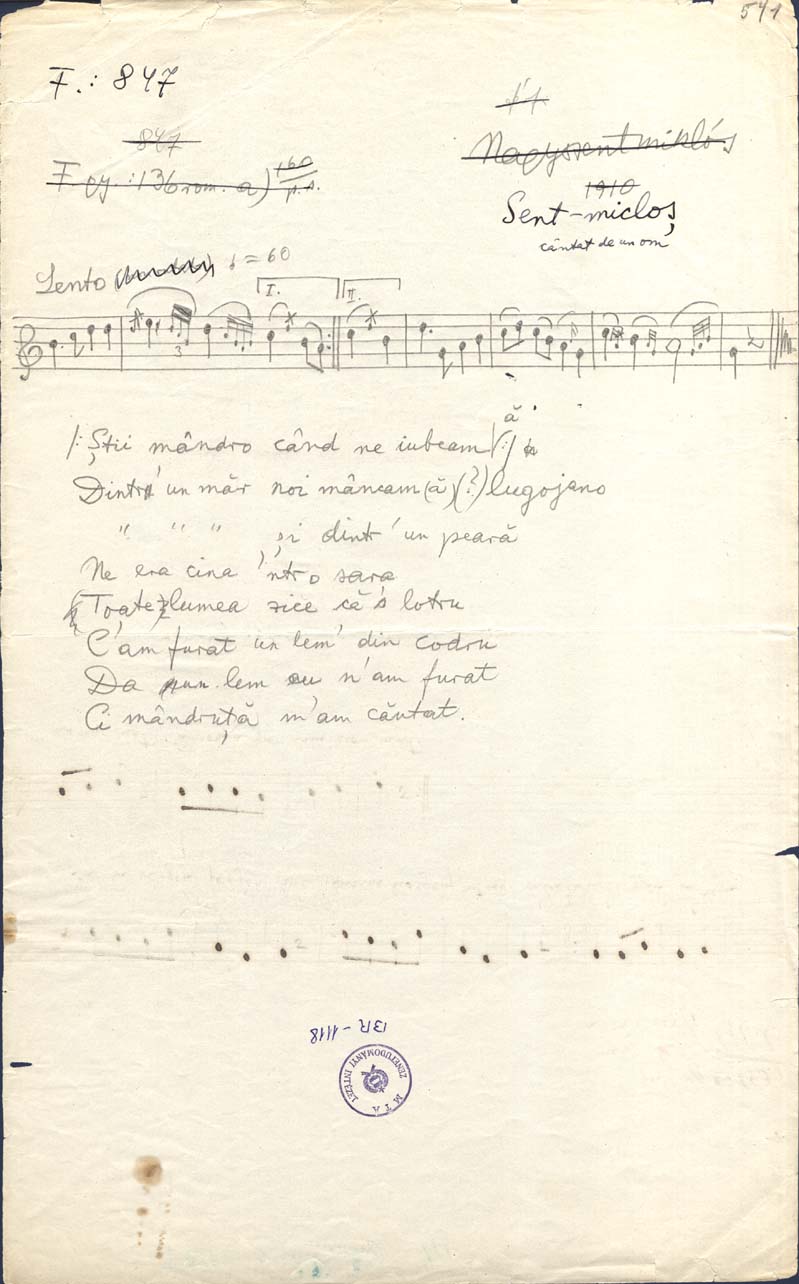 541
F.: 847
847
F gy.: 136 rom. a) 160 p.s.
Nagyszentmiklós
1910
Sent-miclos,
cântat de un om
Lento = 60
I. II.
3
ă
/: Știi mândro când ne iubeam :/
Dintr' un măr noi mâncam (ă) (?) lugojano
" " " și dintr' un peară
Ne era cina 'ntr o sara
(Toate) lumea zice că's lotru
C'am furat un lem' din codru
Da nun lem eu n'am furat
Ci mândruță m'am căutat.
BR - 1118
MTA ZENETUDOMÁNYI INTÉZET